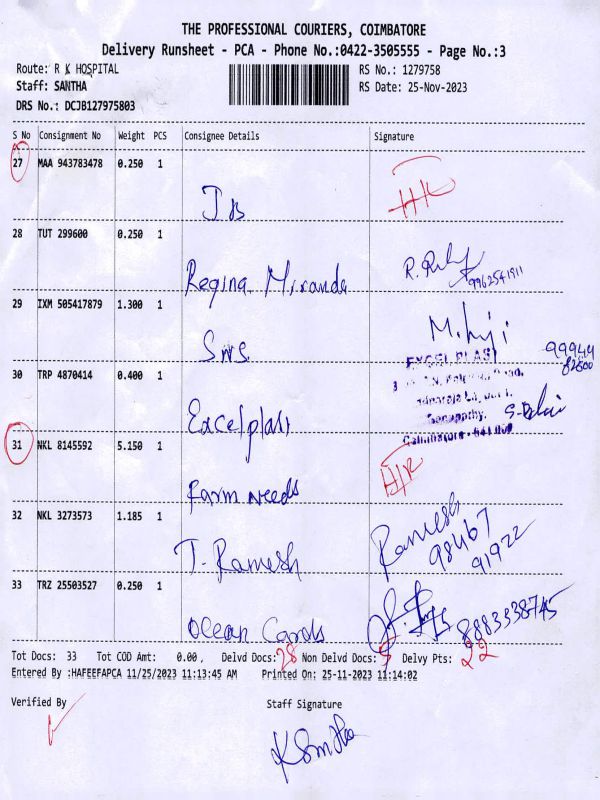 THE PROFESSIONAL COURIERS, COIMBATORE
Delivery Runsheet - PCA - Phone No.:0422-3505555 - Page No.:3
Route: R K HOSPITAL RS No.: 1279758
Staff: SANTHA RS Date: 25-Nov-2023
DRS No.: DCJB127975803
S No Consignment No Weight PCS Consignee Details Signature
27 MAA 943783478 0.250 1
H/R
28 TUT 299600 0.250 1
Regina Miranda
29 IXM 505417879 1.300 1
SWS
EXCEL PLAST
99944
30 TRP 4870414 0.400 1
82500
Ganapathy,
Excelplast
Coimbatore - 641 006
31 NKL 8145592 5.150 1
H/R
Farm Needs
32 NKL 3273573 1.185 1
T. Ramesh Ramesh
98467
91922
33 TRZ 25503527 0.250 1
Ocean Cards 8883338745
Tot Docs: 33 Tot COD Amt: 0.00, Delvd Docs: 28 Non Delvd Docs: 5 Delvy Pts: 22
Entered By :HAFEEFAPCA 11/25/2023 11:13:45 AM Printed On: 25-11-2023 11:14:02
Verified By Staff Signature